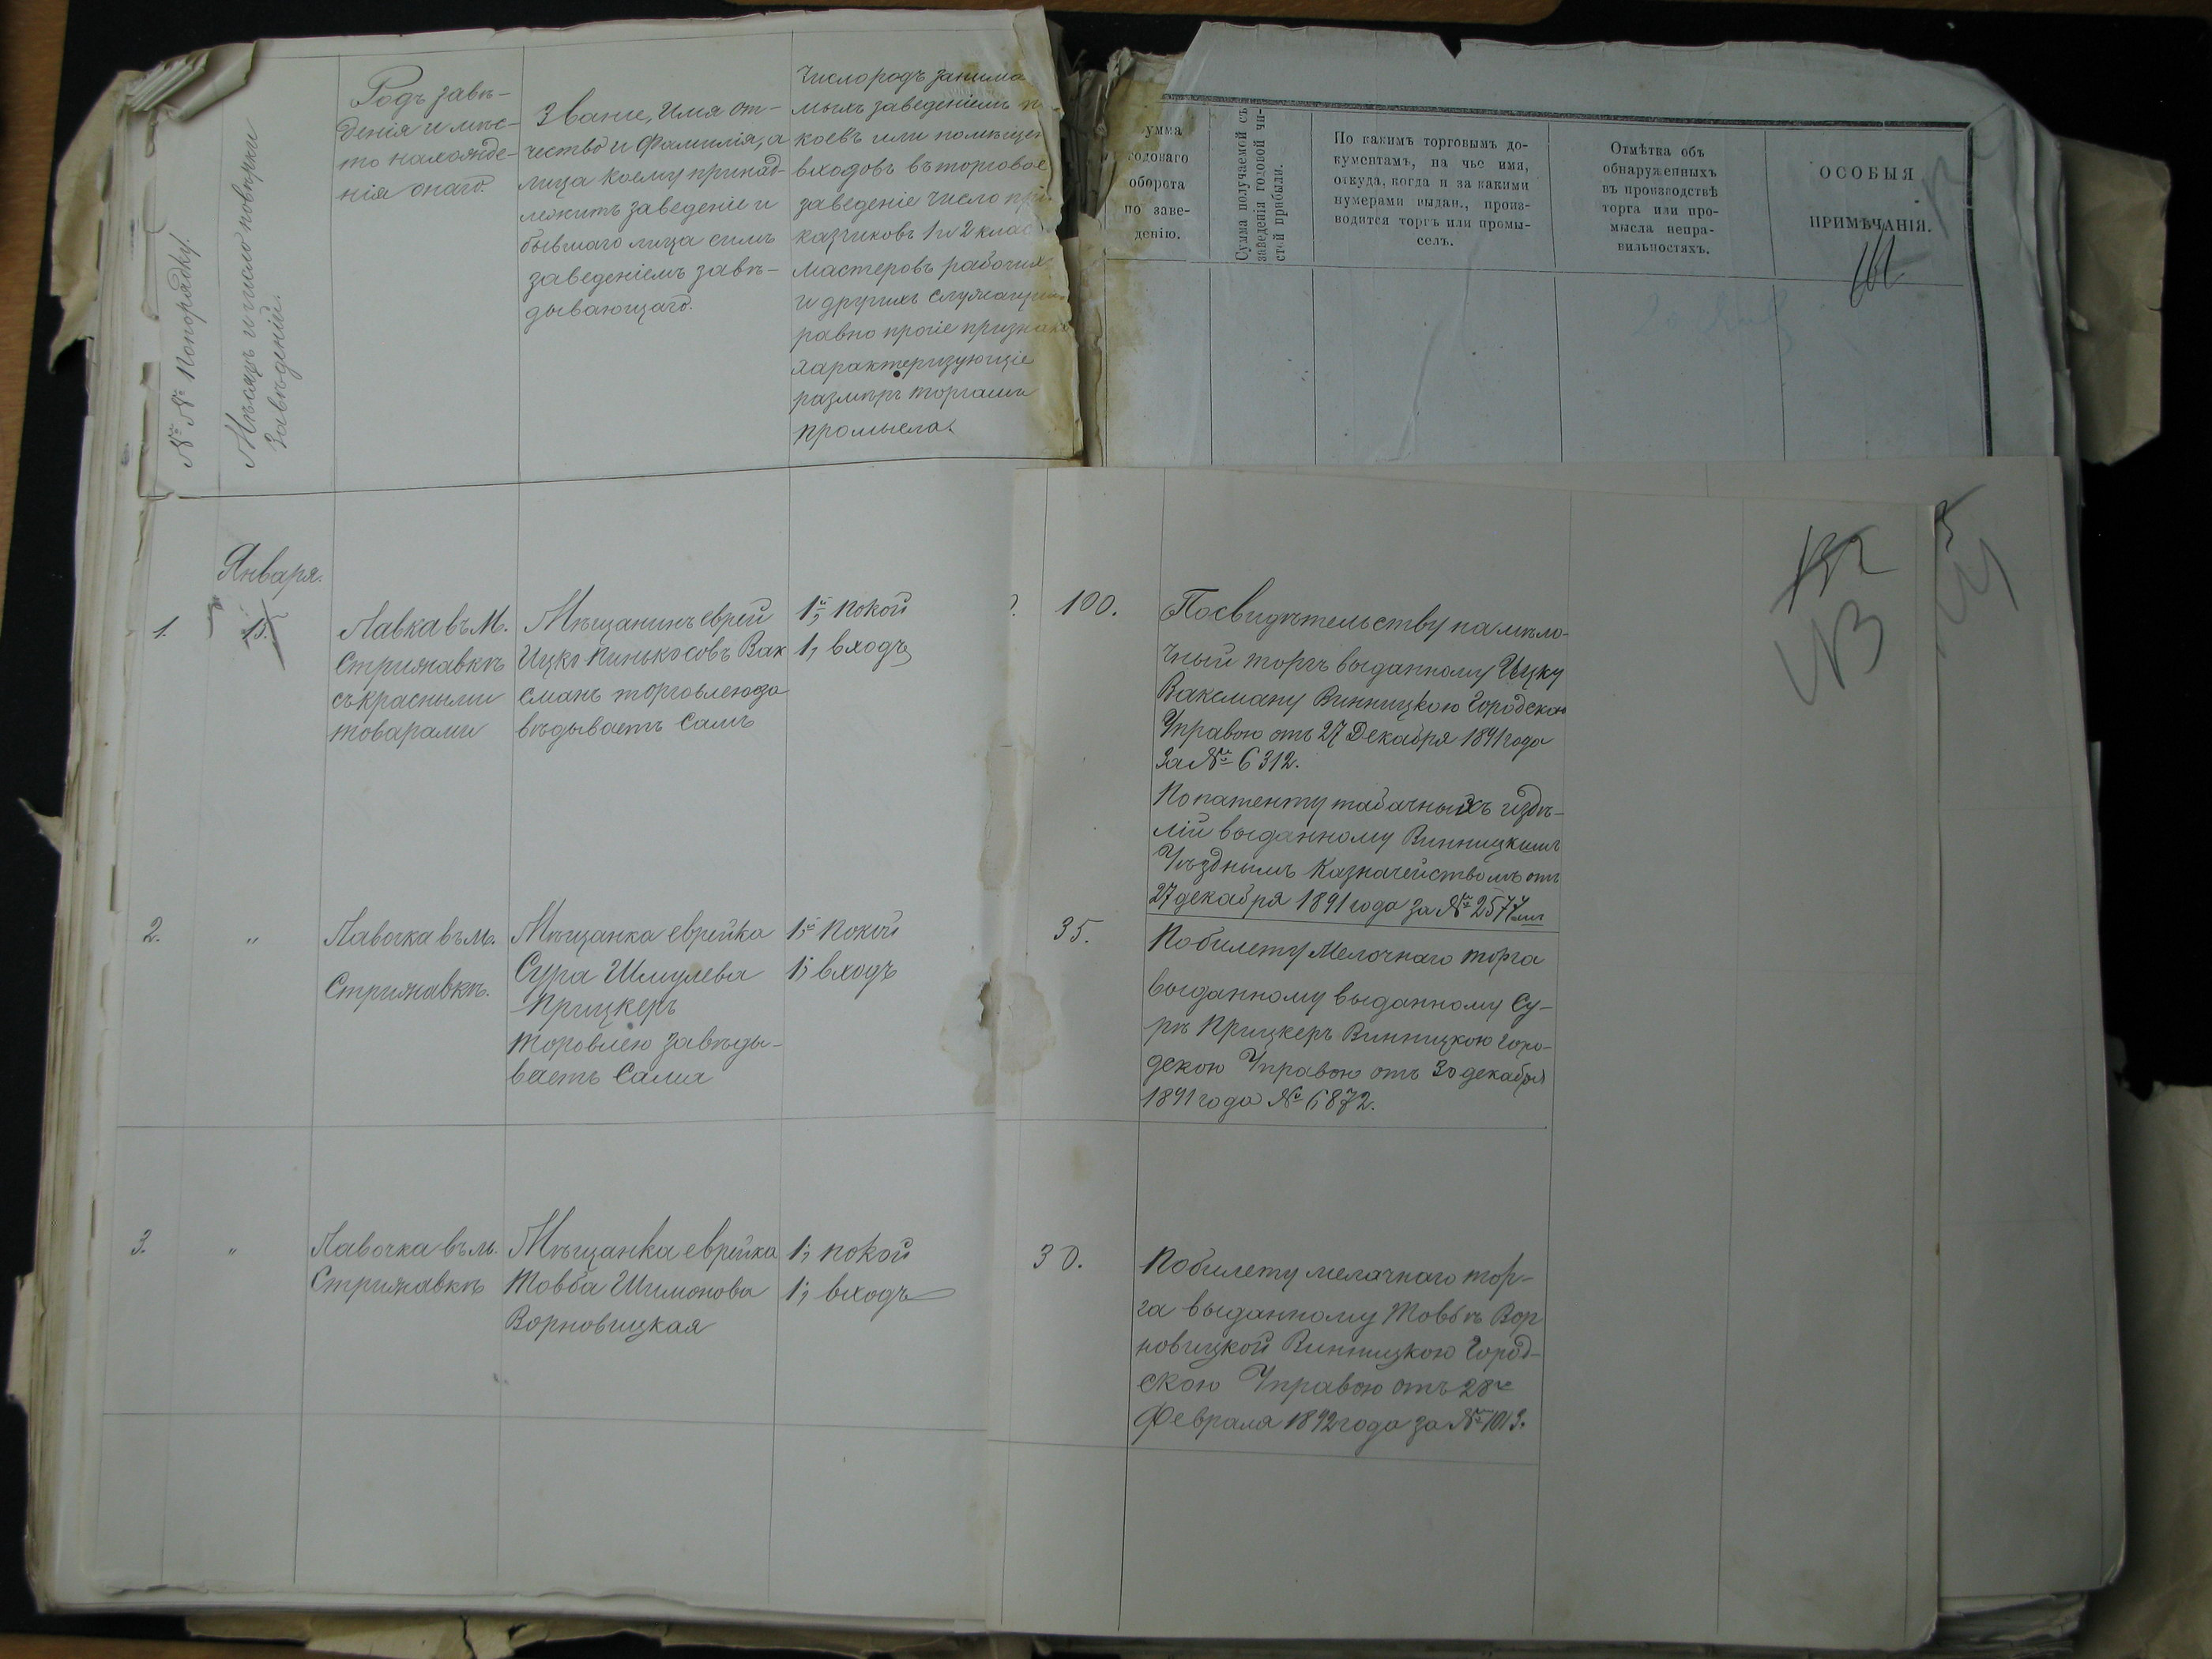 №№ попорядку.
Мѣсяцъ и число повѣрки
Заведеній.
Родъ заве-
денія и мѣс-
то нахожде-
нія онаго.
Званіе, имя от-
чество и фамилія, а
лица коему принад-
лежитъ заведеніе и
бывшаго лица симъ
заведеніемъ завѣ-
дывающаго.
Число родъ занима
мыхъ заведеніемъ п
коевъ или помѣщен
входовъ въ торговое
заведеніе число при
казчиковъ 1 и 2 клас
мастеровъ рабочихъ
и другихъ служащихъ
равно прочіе признаки
характеризующіе
размѣръ торга или
промысла.
умма
годоваго
оборота
по заве-
денію.
Сумма получаемой съ
заведенія годовой чи-
стой прибыли.
По какимъ торговымъ до-
кументамъ, на чье имя,
откуда, когда и за какими
нумерами выдан., произ-
водится торгъ или промы-
селъ.
Отмѣтка объ
обнаруженныхъ
въ производствѣ
торга или про-
мысла непра-
вильностяхъ.
ОСОБЫЯ
ПРИМѢЧАНІЯ.
Января.
1.
15.
Лавка въ М.
Стрижавкѣ
съ красными
товарами
Мѣщанинъ еврей
Ицко Пинькосовъ Вак
сманъ торговлею за
вѣдываетъ самъ
1, покой
1, входъ
100.
Посвидѣтельству на мѣло-
чный торгъ выданному Ицку
Ваксману Винницкою Городскою
Управою отъ 27 Декабря 1891 года
За № 6312.
По патенту табачныхъ издѣ-
лій выданному Винницкимъ
Уѣзднымъ Казначействомъ отъ
27 декабря 1891 года за № 2577
2.
"
Лавочка въ м.
Стрижавкѣ.
Мѣщанка еврейка
Сура Шмулева
Прицкеръ
торовлею завѣды-
ваетъ Сама
1, покой
1, входъ
35.
По билету Мелочнаго торга
выданному выданному Су-
рѣ Прицкеръ Винницкою Горо-
дскою Управою отъ 30 декабря
1891 года № 6872.
3.
"
Лавочка въ м.
Стрижавкѣ
Мѣщанка еврейка
Товба Шимонова
Ворновицкая
1, покой
1, входъ
30.
По билету мелачнаго тор-
га выданному Товбѣ Вор
новицкой Винницкою Город-
скою Управою отъ 28го
Февраля 1892 года за № 1013.